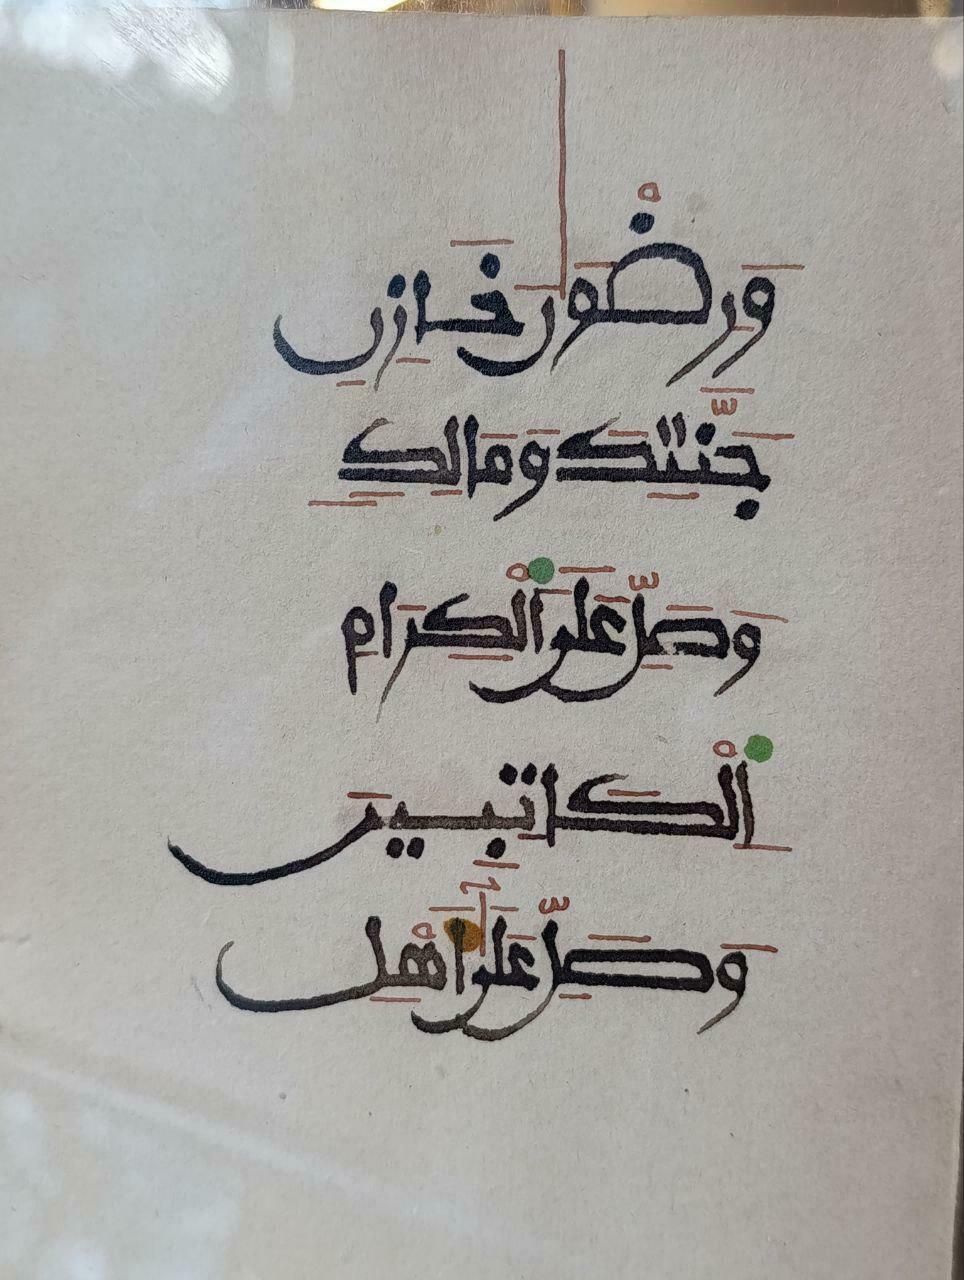 وَرِضْوَانَ خَازِنِ
جَنَّتِكَ وَمَالِكِ
وَصَلِّ عَلَى الْكِرَامِ
الْكَاتِبِينَ
وَصَلِّ عَلَى أَهْلِ